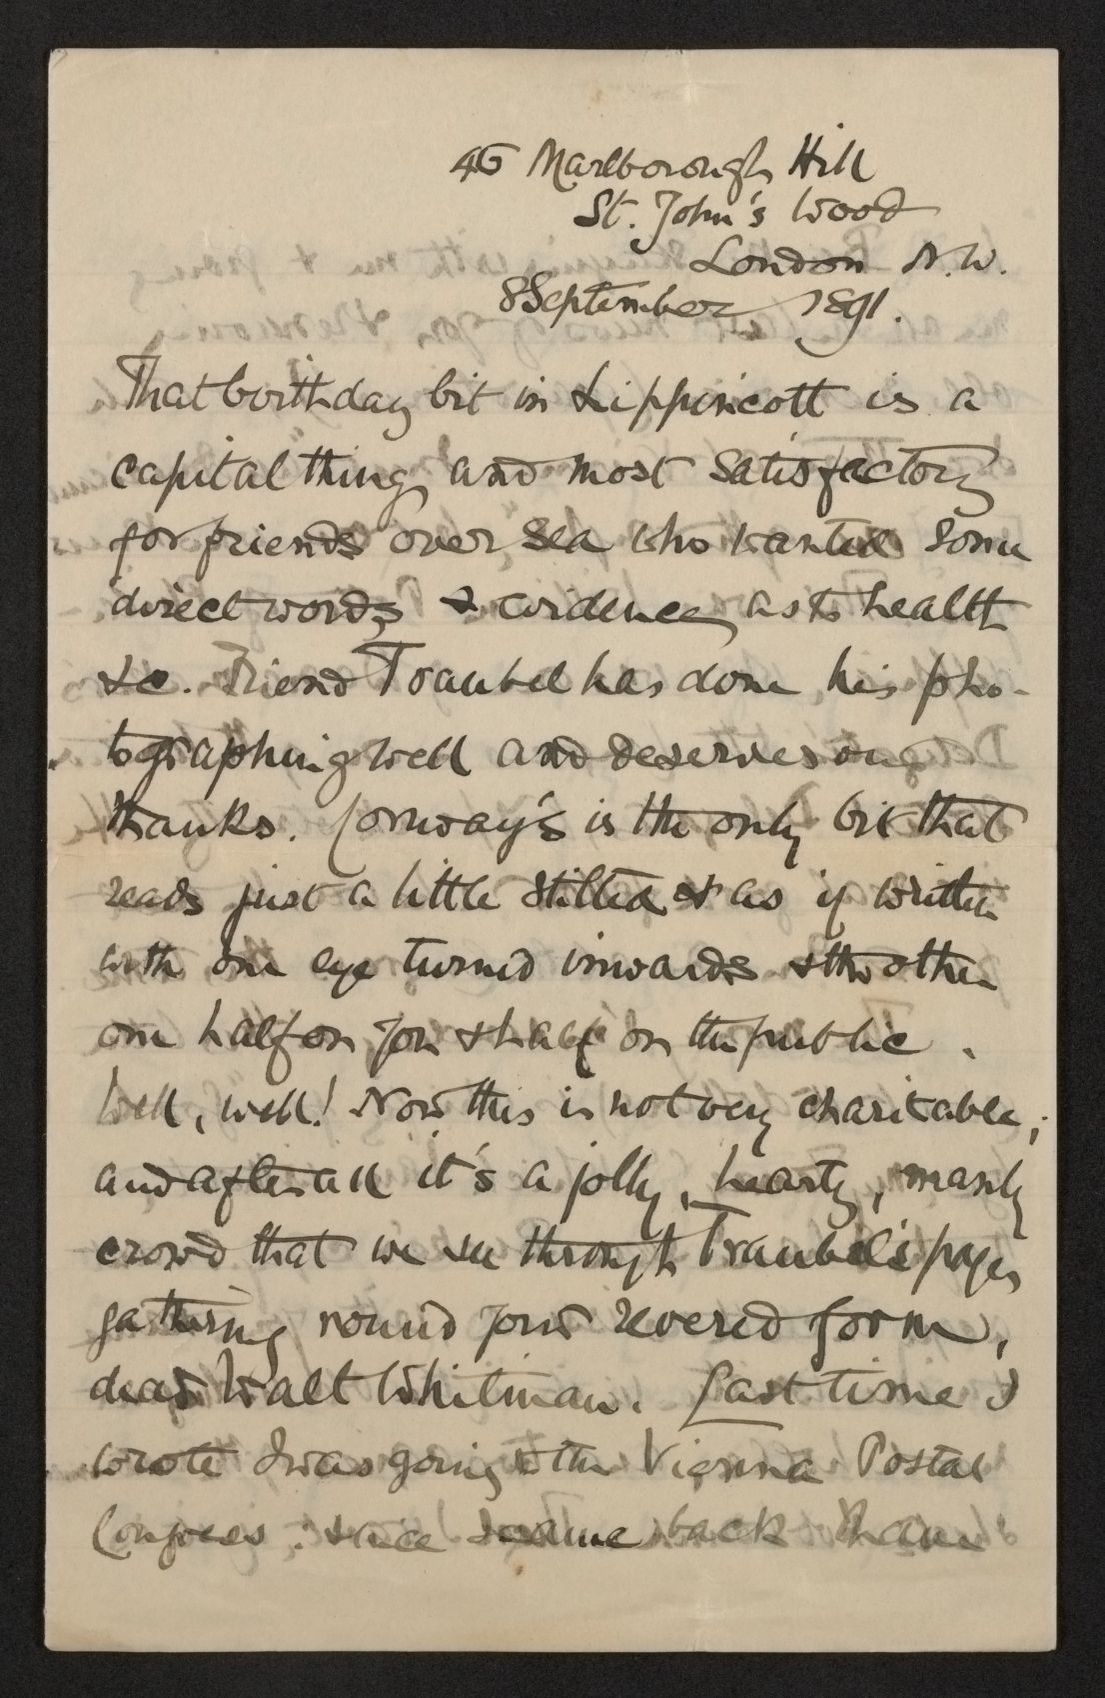 46 Marlborough Hill
St. John's Wood
London N.W.
8 September 1891.
That birthday bit in Lippincott is a
capital thing, and most satisfactory
for friends over sea who wanted some
direct words, & evidence, as to health
&c. Friend Traubel has done his pho-
tographing well and deserves our
thanks. Conway's is the only bit that
reads just a little stilted & as if written
with one eye turned inwards & the other
one half on you & half on the public.
Well, well! Now this is not very charitable;
and after all it's a jolly, hearty, manly
crowd that we see through Traubel's pages
gathering round your revered form,
dear Walt Whitman. Last time I
wrote I was going to the Vienna Postal
Congress: since I came back I have